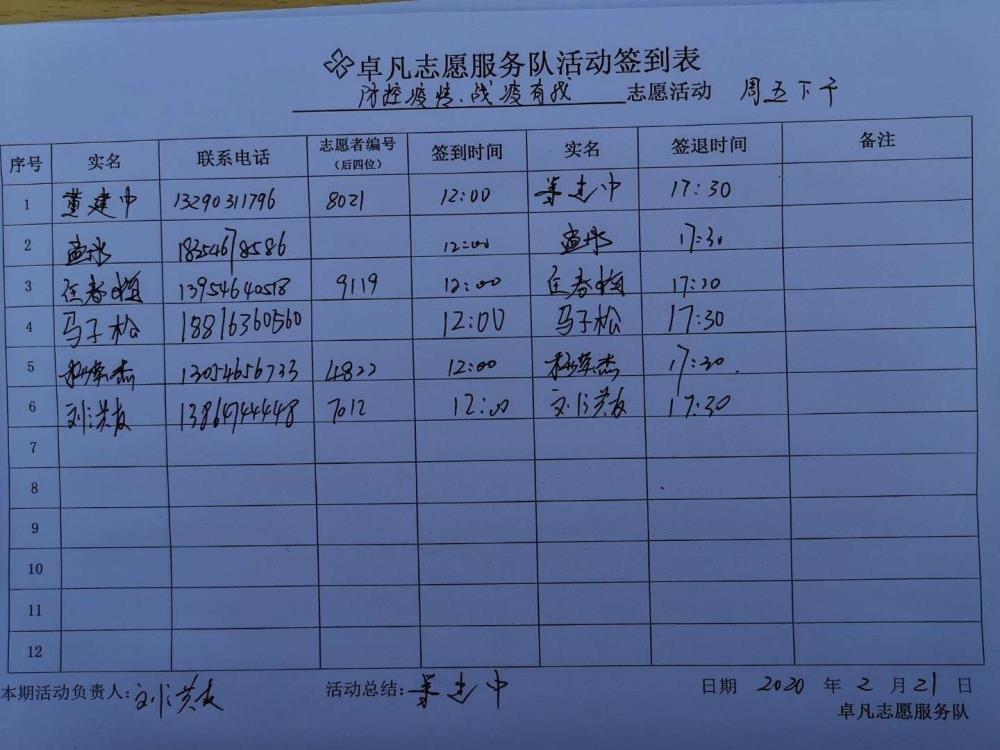 卓凡志愿服务队活动签到表
防控疫情、战疫有我 志愿活动 周五下午
序号 实名 联系电话 志愿者编号(后四位) 签到时间 实名 签退时间 备注
1 董建中 13290311796 8021 12:00 董建中 17:30
2 孟彬 18354678586 12:00 孟彬 17:30
3 任春梅 13954640518 9119 12:00 任春梅 17:20
4 马子松 18816360560 12:00 马子松 17:30
5 13054656733 4822 12:00 17:30
6 刘洪友 13864744448 7012 12:00 刘洪友 17:30
7
8
9
10
11
12
本期活动负责人:刘洪友 活动总结:董建中 日期 2020 年 2 月 21 日
卓凡志愿服务队